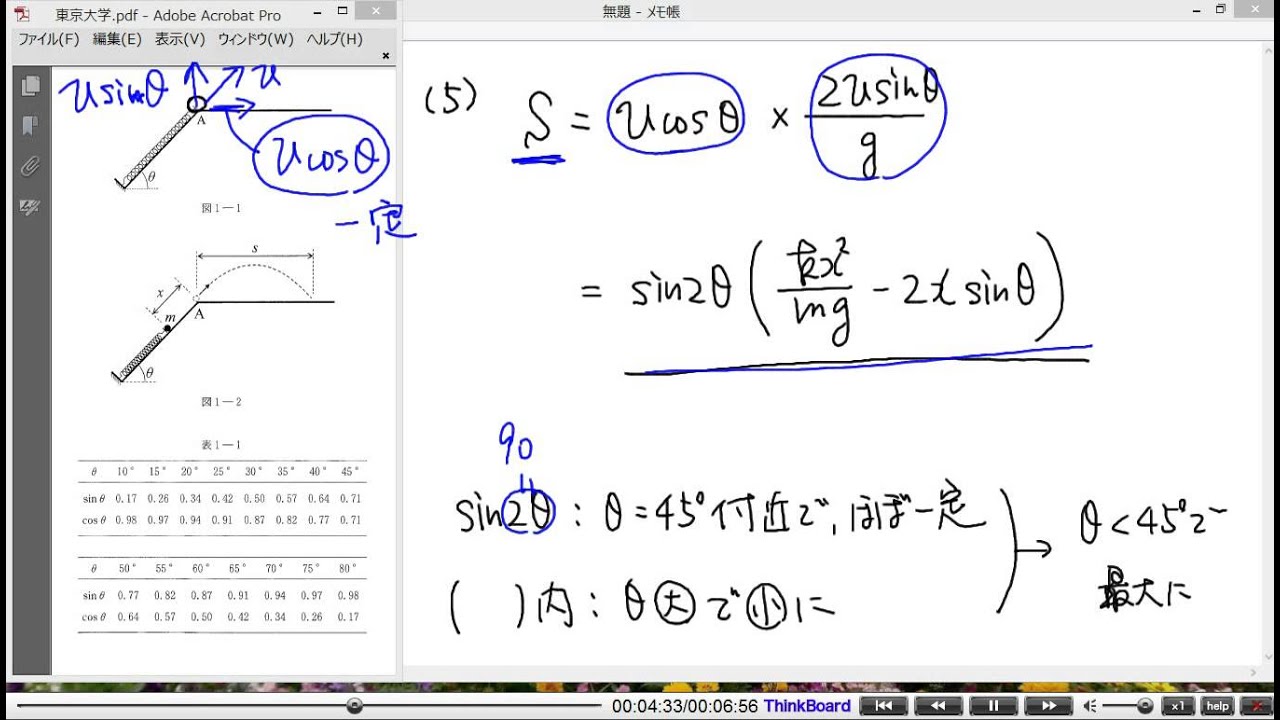 東京大学.pdf - Adobe Acrobat Pro
ファイル(F) 編集(E) 表示(V) ウィンドウ(W) ヘルプ(H)
無題 - メモ帳
u sinθ
u
A
u cosθ
一定
θ
図1-1
s
x
A
m
θ
図1-2
表1-1
θ 10° 15° 20° 25° 30° 35° 40° 45°
sinθ 0.17 0.26 0.34 0.42 0.50 0.57 0.64 0.71
cosθ 0.98 0.97 0.94 0.91 0.87 0.82 0.77 0.71
θ 50° 55° 60° 65° 70° 75° 80°
sinθ 0.77 0.82 0.87 0.91 0.94 0.97 0.98
cosθ 0.64 0.57 0.50 0.42 0.34 0.26 0.17
(5) S = u cosθ × 2u sinθ / g
= sin2θ ( kx² / mg - 2x sinθ )
90
sin2θ : θ = 45°付近で, ほぼ一定
( )内 : θ 大 で 小 に
θ < 45°で
最大に
00:04:33/00:06:56 ThinkBoard
x1
help